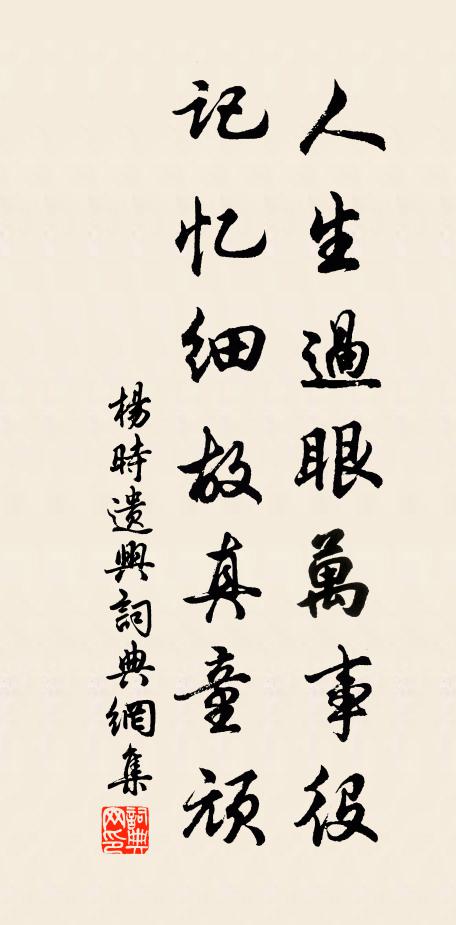 人生過眼萬事役
记忆细故真童頑
楊時遣興詞典網集
詞典網印